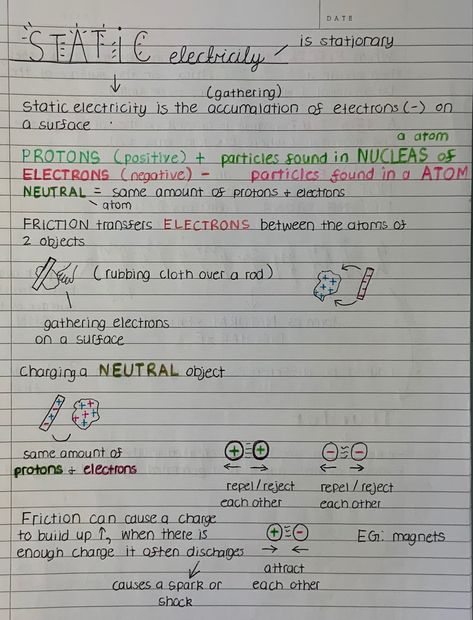 DATE
STATIC electricity / is stationary
(gathering)
Static electricity is the accumalation of electrons (-) on
a surface
a atom
PROTONS (positive) + particles found in NUCLEAS of
ELECTRONS (negative) - particles found in a ATOM
NEUTRAL = same amount of protons + electrons
atom
FRICTION transfers ELECTRONS between the atoms of
2 objects
(rubbing cloth over a rod)
gathering electrons
on a surface
Charging a NEUTRAL object
same amount of
protons + electrons
repel/reject
each other
repel/reject
each other
Friction can cause a charge
to build up ↑, when there is
enough charge it often discharges
EG: magnets
attract
each other
causes a spark or
shock